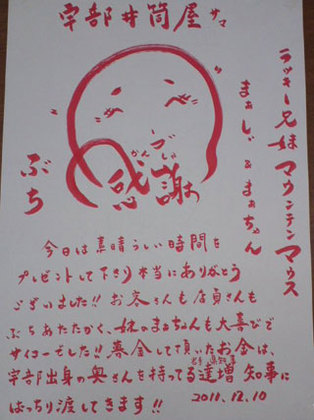 宇部井筒屋サマ
ラッキー兄妹マウンテンマウス
まぁしぃ&まぁちゃん
ぶち
かんづしゃ
感謝
今日は素晴らしい時間を
プレゼントして下さり本当にありがとう
ございました!!お客さんも店員さんも
ぶちあたたかく、妹のまぁちゃんも大喜びで
サイコーでした!!募金して頂いたお金は、
岩手県知事
宇部出身の奥さんを持ってる達増知事に
ばっちり渡してきます!!
2011.12.10